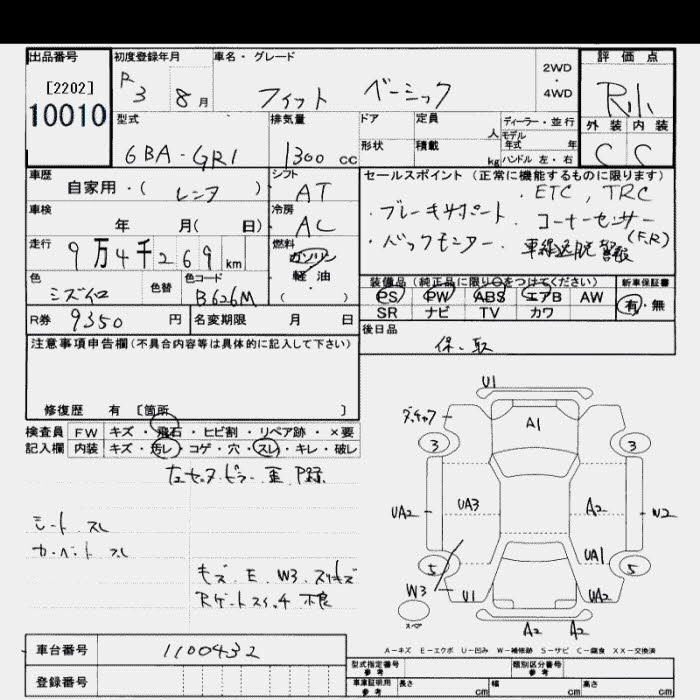 出品番号 初度登録年月 車名・グレード 2WD・4WD 評価点
[2202] R3 8月 フィット ベーシック R小
10010
型式 排気量 ドア 定員 人 ディーラー・並行 外装 内装
モデル年式 年
6BA-GR1 1300 cc 形状 積載 kg ハンドル 左・右 C C
車歴 シフト セールスポイント (正常に機能するものに限ります)
自家用・( レンタ ) AT ・ETC, TRC
車検 年 月( 日) 冷房 AC ・ブレーキサポート コーナーセンサー
(F,R)
走行 燃料 ・バックモニター 車線逸脱警報
9万4千269 km ガソリン
軽・油
( )
色 色替 色コード 装備品 (純正品に限り○をつけてください) 新車保証書
シズイロ B626M PS PW ABS エアB AW 有・無
SR ナビ TV カワ
R券 9350 円 名変期限 月 日 後日品
注意事項申告欄(不具合内容等は具体的に記入して下さい) 保、取
修復歴 有 [箇所 ]
検査員 FW キズ・飛石・ヒビ割・リペア跡・×要
記入欄 内装 キズ・汚レ・コゲ・穴・スレ・キレ・破レ
左センターピラー 歪 P録
シート スレ
カーペット スレ
キズ.E.W3.スリキズ
Rゲートスイッチ不良
U1
A1
3 3
UA2 UA3 A2 W2
UA1
5 5
W3 U1 UA2
スペア
A2 A2
A-キズ E-エクボ U-凹み W-補修跡 S-サビ C-腐食 XX-交換済
車台番号 1100432
登録番号
型式指定番号 参考 類別区分番号 参考
車庫証明用 参考 長さ cm 幅 cm 高さ cm